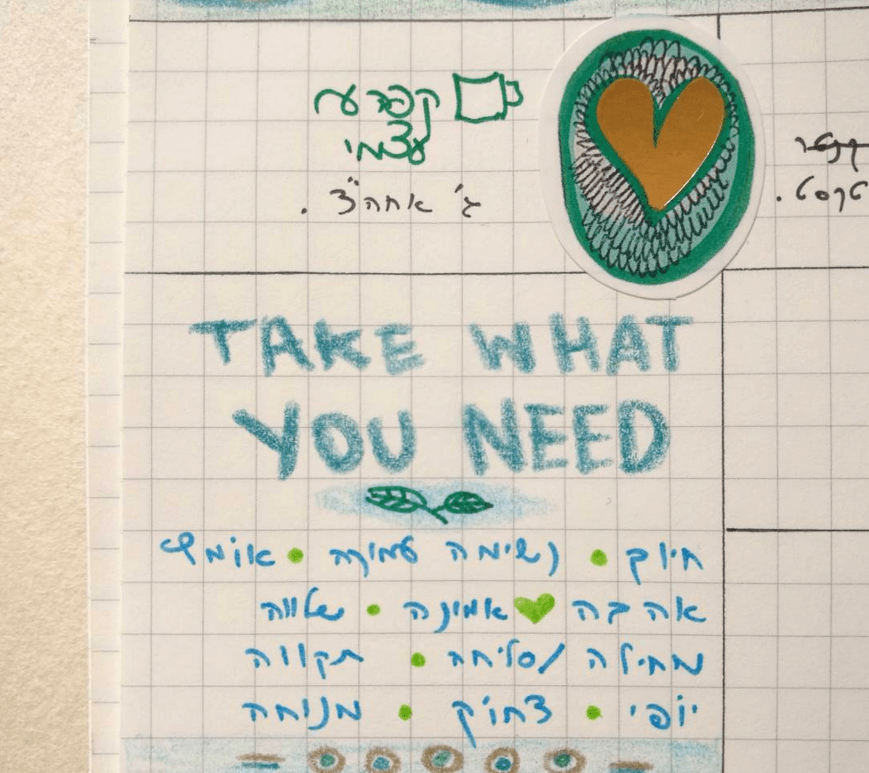 קפה עם
עצמי
ג' אחה"צ.
טקסט.
TAKE WHAT
YOU NEED
חיוך • נשימה עמוקה • אומץ
אהבה ♥ אמונה • שלווה
מחילה/סליחה • תקווה
יופי • צחוק • מנוחה